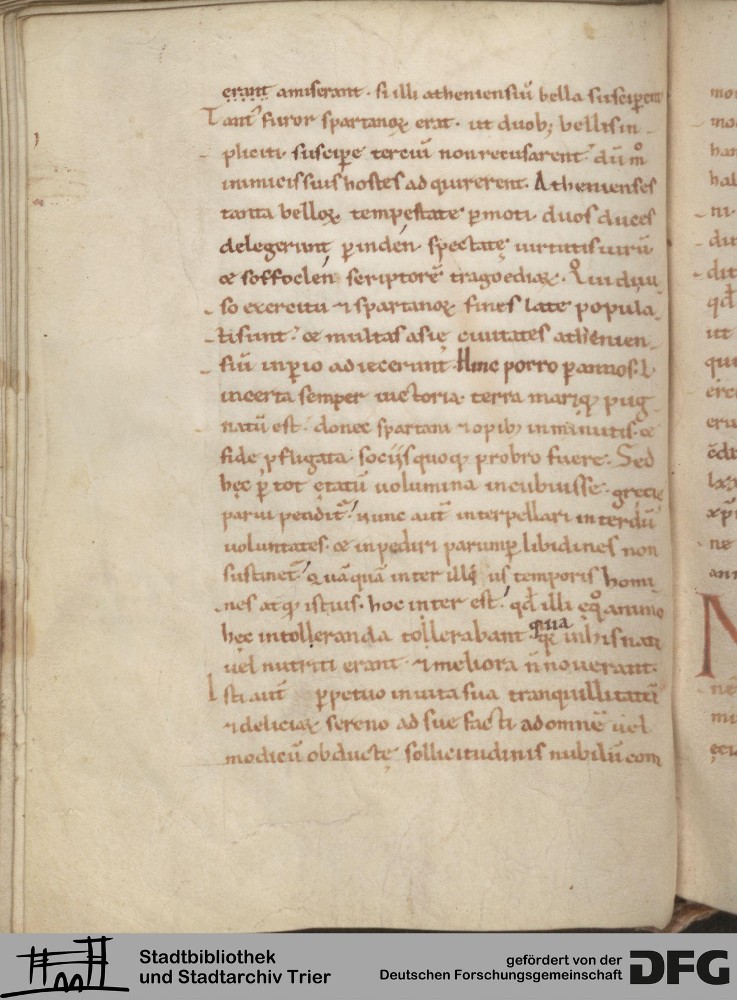 erant amiserant. si illi atheniensiū bella susciperent
Tant᷒ furor spartanoꝝ erat. ut duob; bellis in-
pliciti suscipe terciū non recusarent. dū m̊
inimicis suis hostes adquirerent. Athenienses
tanta belloꝝ tempestate ꝑmoti duos duces
delegerunt ꝑinden spectatę uirtutis uirū
& soffoclen scriptorē tragoediaꝝ. Qui diui-
so exercitu & spartanoꝝ fines late popula-
ti sunt. & multas asię ciuitates athenien-
siū inꝑio adiecerunt. Hinc porro ꝑ annos. l.
incerta semper uictoria. terra mariq; pug
natū est. donec spartani & opib; inminutis. &
fide ꝓfligata. sociis quoq; probro fuere. Sed
hęc ꝑ tot ętatū uolumina incubuisse. gręcię
parui pendit᷒. nunc aut interpellari interdū
uoluntates. & inpediri parumꝑ libidines non
sustinet᷒. Quāquā inter illi us temporis homi
nes atq; istius. hoc inter est. qđ illi ęq̊ animo
hęc intolleranda tollerabant. quia
qę in his nati
uel nutriti erant. & meliora n̄ nouerant.
Isti aut ꝑpetuo in uita sua tranquillitatū
& deliciaꝝ sereno adsuefacti ad omnē uel
modicū obductę sollicitudinis nubilū com
mo
ha
hal
ni.
du
dit
qđ
ut
qui
eru
ne
N
Stadtbibliothek
und Stadtarchiv Trier
gefördert von der
Deutschen Forschungsgemeinschaft
DFG